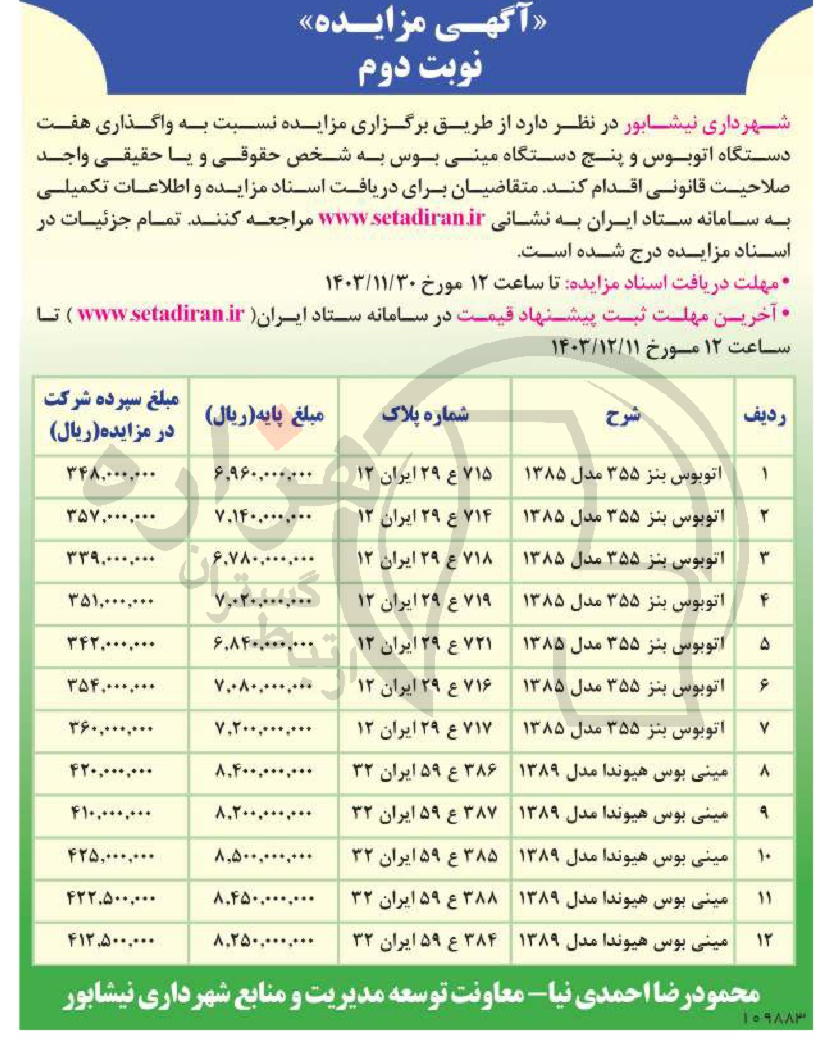 «آگهی مزایده»
نوبت دوم
شهرداری نیشابور در نظر دارد از طریق برگزاری مزایده نسبت به واگذاری هفت
دستگاه اتوبوس و پنج دستگاه مینی بوس به شخص حقوقی و یا حقیقی واجد
صلاحیت قانونی اقدام کند. متقاضیان برای دریافت اسناد مزایده و اطلاعات تکمیلی
به سامانه ستاد ایران به نشانی www.setadiran.ir مراجعه کنند. تمام جزئیات در
اسناد مزایده درج شده است.
•مهلت دریافت اسناد مزایده: تا ساعت ۱۲ مورخ ۱۴۰۳/۱۱/۳۰
• آخرین مهلت ثبت پیشنهاد قیمت در سامانه ستاد ایران( www.setadiran.ir ) تا
ساعت ۱۲ مورخ ۱۴۰۳/۱۲/۱۱
ردیف شرح شماره پلاک مبلغ پایه(ریال) مبلغ سپرده شرکت در مزایده(ریال)
۱ اتوبوس بنز ۳۵۵ مدل ۱۳۸۵ ۷۱۵ ع ۲۹ ایران ۱۲ ۶,۹۶۰,۰۰۰,۰۰۰ ۳۴۸,۰۰۰,۰۰۰
۲ اتوبوس بنز ۳۵۵ مدل ۱۳۸۵ ۷۱۴ ع ۲۹ ایران ۱۲ ۷,۱۴۰,۰۰۰,۰۰۰ ۳۵۷,۰۰۰,۰۰۰
۳ اتوبوس بنز ۳۵۵ مدل ۱۳۸۵ ۷۱۸ ع ۲۹ ایران ۱۲ ۶,۷۸۰,۰۰۰,۰۰۰ ۳۳۹,۰۰۰,۰۰۰
۴ اتوبوس بنز ۳۵۵ مدل ۱۳۸۵ ۷۱۹ ع ۲۹ ایران ۱۲ ۷,۰۲۰,۰۰۰,۰۰۰ ۳۵۱,۰۰۰,۰۰۰
۵ اتوبوس بنز ۳۵۵ مدل ۱۳۸۵ ۷۲۱ ع ۲۹ ایران ۱۲ ۶,۸۴۰,۰۰۰,۰۰۰ ۳۴۲,۰۰۰,۰۰۰
۶ اتوبوس بنز ۳۵۵ مدل ۱۳۸۵ ۷۱۶ ع ۲۹ ایران ۱۲ ۷,۰۸۰,۰۰۰,۰۰۰ ۳۵۴,۰۰۰,۰۰۰
۷ اتوبوس بنز ۳۵۵ مدل ۱۳۸۵ ۷۱۷ ع ۲۹ ایران ۱۲ ۷,۲۰۰,۰۰۰,۰۰۰ ۳۶۰,۰۰۰,۰۰۰
۸ مینی بوس هیوندا مدل ۱۳۸۹ ۳۸۶ ع ۵۹ ایران ۳۲ ۸,۴۰۰,۰۰۰,۰۰۰ ۴۲۰,۰۰۰,۰۰۰
۹ مینی بوس هیوندا مدل ۱۳۸۹ ۳۸۷ ع ۵۹ ایران ۳۲ ۸,۲۰۰,۰۰۰,۰۰۰ ۴۱۰,۰۰۰,۰۰۰
۱۰ مینی بوس هیوندا مدل ۱۳۸۹ ۳۸۵ ع ۵۹ ایران ۳۲ ۸,۵۰۰,۰۰۰,۰۰۰ ۴۲۵,۰۰۰,۰۰۰
۱۱ مینی بوس هیوندا مدل ۱۳۸۹ ۳۸۸ ع ۵۹ ایران ۳۲ ۸,۴۵۰,۰۰۰,۰۰۰ ۴۲۲,۵۰۰,۰۰۰
۱۲ مینی بوس هیوندا مدل ۱۳۸۹ ۳۸۴ ع ۵۹ ایران ۳۲ ۸,۲۵۰,۰۰۰,۰۰۰ ۴۱۲,۵۰۰,۰۰۰
محمودرضا احمدی نیا– معاونت توسعه مدیریت و منابع شهرداری نیشابور
۱۰۹۸۸۳
هزاره
گستران
ارتباط